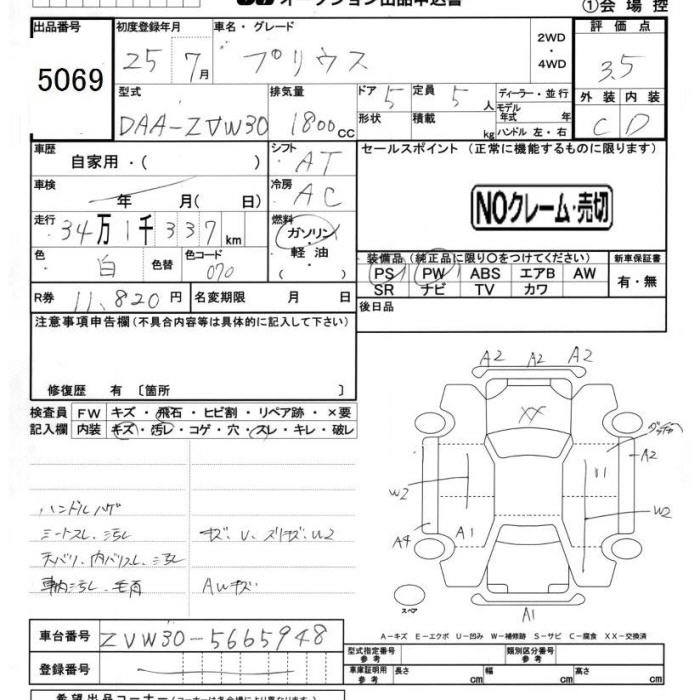 オークション出品申込書
①会場控
出品番号 初度登録年月 車名・グレード 評価点
5069 25 7月 プリウス 2WD・4WD 3.5
型式 排気量 ドア 定員 ディーラー・並行 外装 内装
DAA-ZVW30 1800cc 5 5人 モデル年式 年 C D
形状 積載 kg ハンドル 左・右
車歴 シフト セールスポイント (正常に機能するものに限ります)
自家用・( ) AT
車検 冷房
年 月( 日) AC NOクレーム・売切
走行 燃料
34万1千337km ガソリン・軽油・( )
色 色替 色コード 装備品(純正品に限り○をつけてください) 新車保証書
白 070 PS PW ABS エアB AW 有・無
SR ナビ TV カワ
R券 11,820円 名変期限 月 日 後日品
注意事項申告欄(不具合内容等は具体的に記入して下さい)
修復歴 有 〔箇所 〕
検査員 FW キズ・飛石・ヒビ割・リペア跡・×要
記入欄 内装 キズ・汚レ・コゲ・穴・スレ・キレ・破レ
ハンドルハゲ
シートスレ.汚レ キズ.U.スリキズ.W2
天バリ.内バリスレ.汚レ
車内汚レ.毛有 AWキズ
A2 A2 A2
XX
A2
W2 U W2
A4 A1
スペア
A1
A-キズ E-エクボ U-凹み W-補修跡 S-サビ C-腐食 XX-交換済
車台番号 ZVW30-5665948
型式指定番号 参考 類別区分番号 参考
登録番号
車庫証明用 参考 長さ cm 幅 cm 高さ cm
希望出品コーナー(コーナーは各会場により異なります)